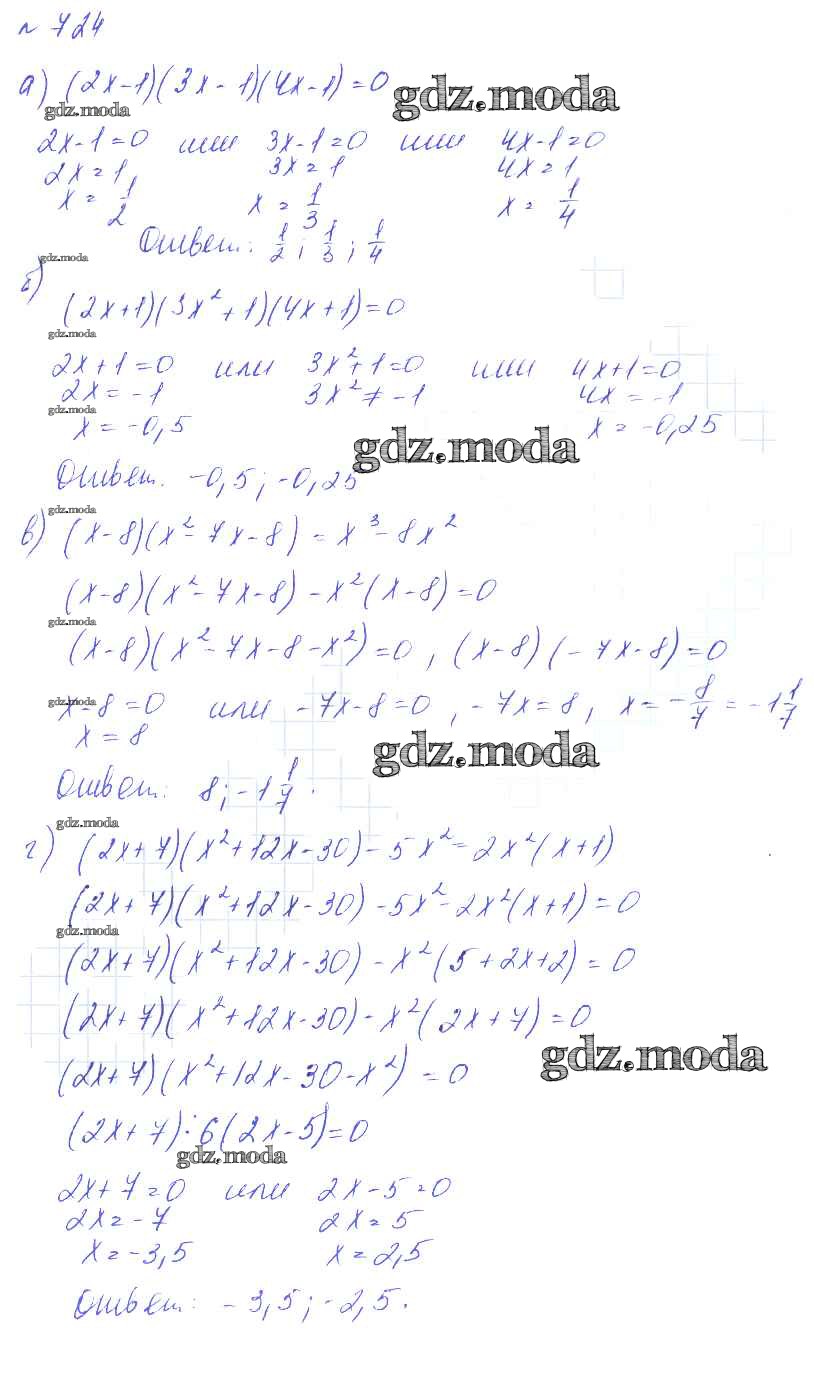 № 724
а) (2x-1)(3x-1)(4x-1)=0 gdz.moda
gdz.moda
2x-1=0 или 3x-1=0 или 4x-1=0
2x=1, 3x=1 4x=1
x=1/2 x=1/3 x=1/4
Ответ: 1/2; 1/3; 1/4
gdz.moda
б)
(2x+1)(3x²+1)(4x+1)=0
gdz.moda
2x+1=0 или 3x²+1=0 или 4x+1=0
2x=-1 3x²≠-1 4x=-1
gdz.moda
x=-0,5 x=-0,25
gdz.moda
Ответ. -0,5; -0,25
gdz.moda
в) (x-8)(x²-7x-8)=x³-8x²
(x-8)(x²-7x-8)-x²(x-8)=0
gdz.moda
(x-8)(x²-7x-8-x²)=0, (x-8)(-7x-8)=0
gdz.moda
x-8=0 или -7x-8=0, -7x=8, x=-8/7=-1 1/7
x=8
gdz.moda
Ответ: 8; -1 1/7.
gdz.moda
г) (2x+7)(x²+12x-30)-5x²=2x²(x+1)
(2x+7)(x²+12x-30)-5x²-2x²(x+1)=0
gdz.moda
(2x+7)(x²+12x-30)-x²(5+2x+2)=0
(2x+7)(x²+12x-30)-x²(2x+7)=0
gdz.moda
(2x+7)(x²+12x-30-x²)=0
(2x+7)·6(2x-5)=0
gdz.moda
2x+7=0 или 2x-5=0
2x=-7 2x=5
x=-3,5 x=2,5
Ответ: -3,5; -2,5.